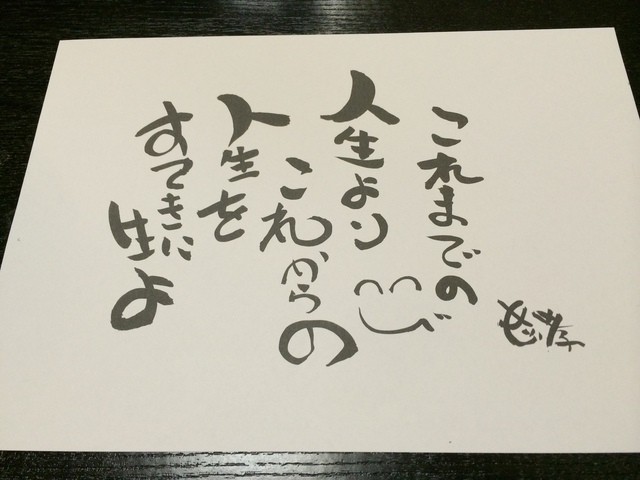 これまでの
人生より
これからの
人生を
すてきに
生よ